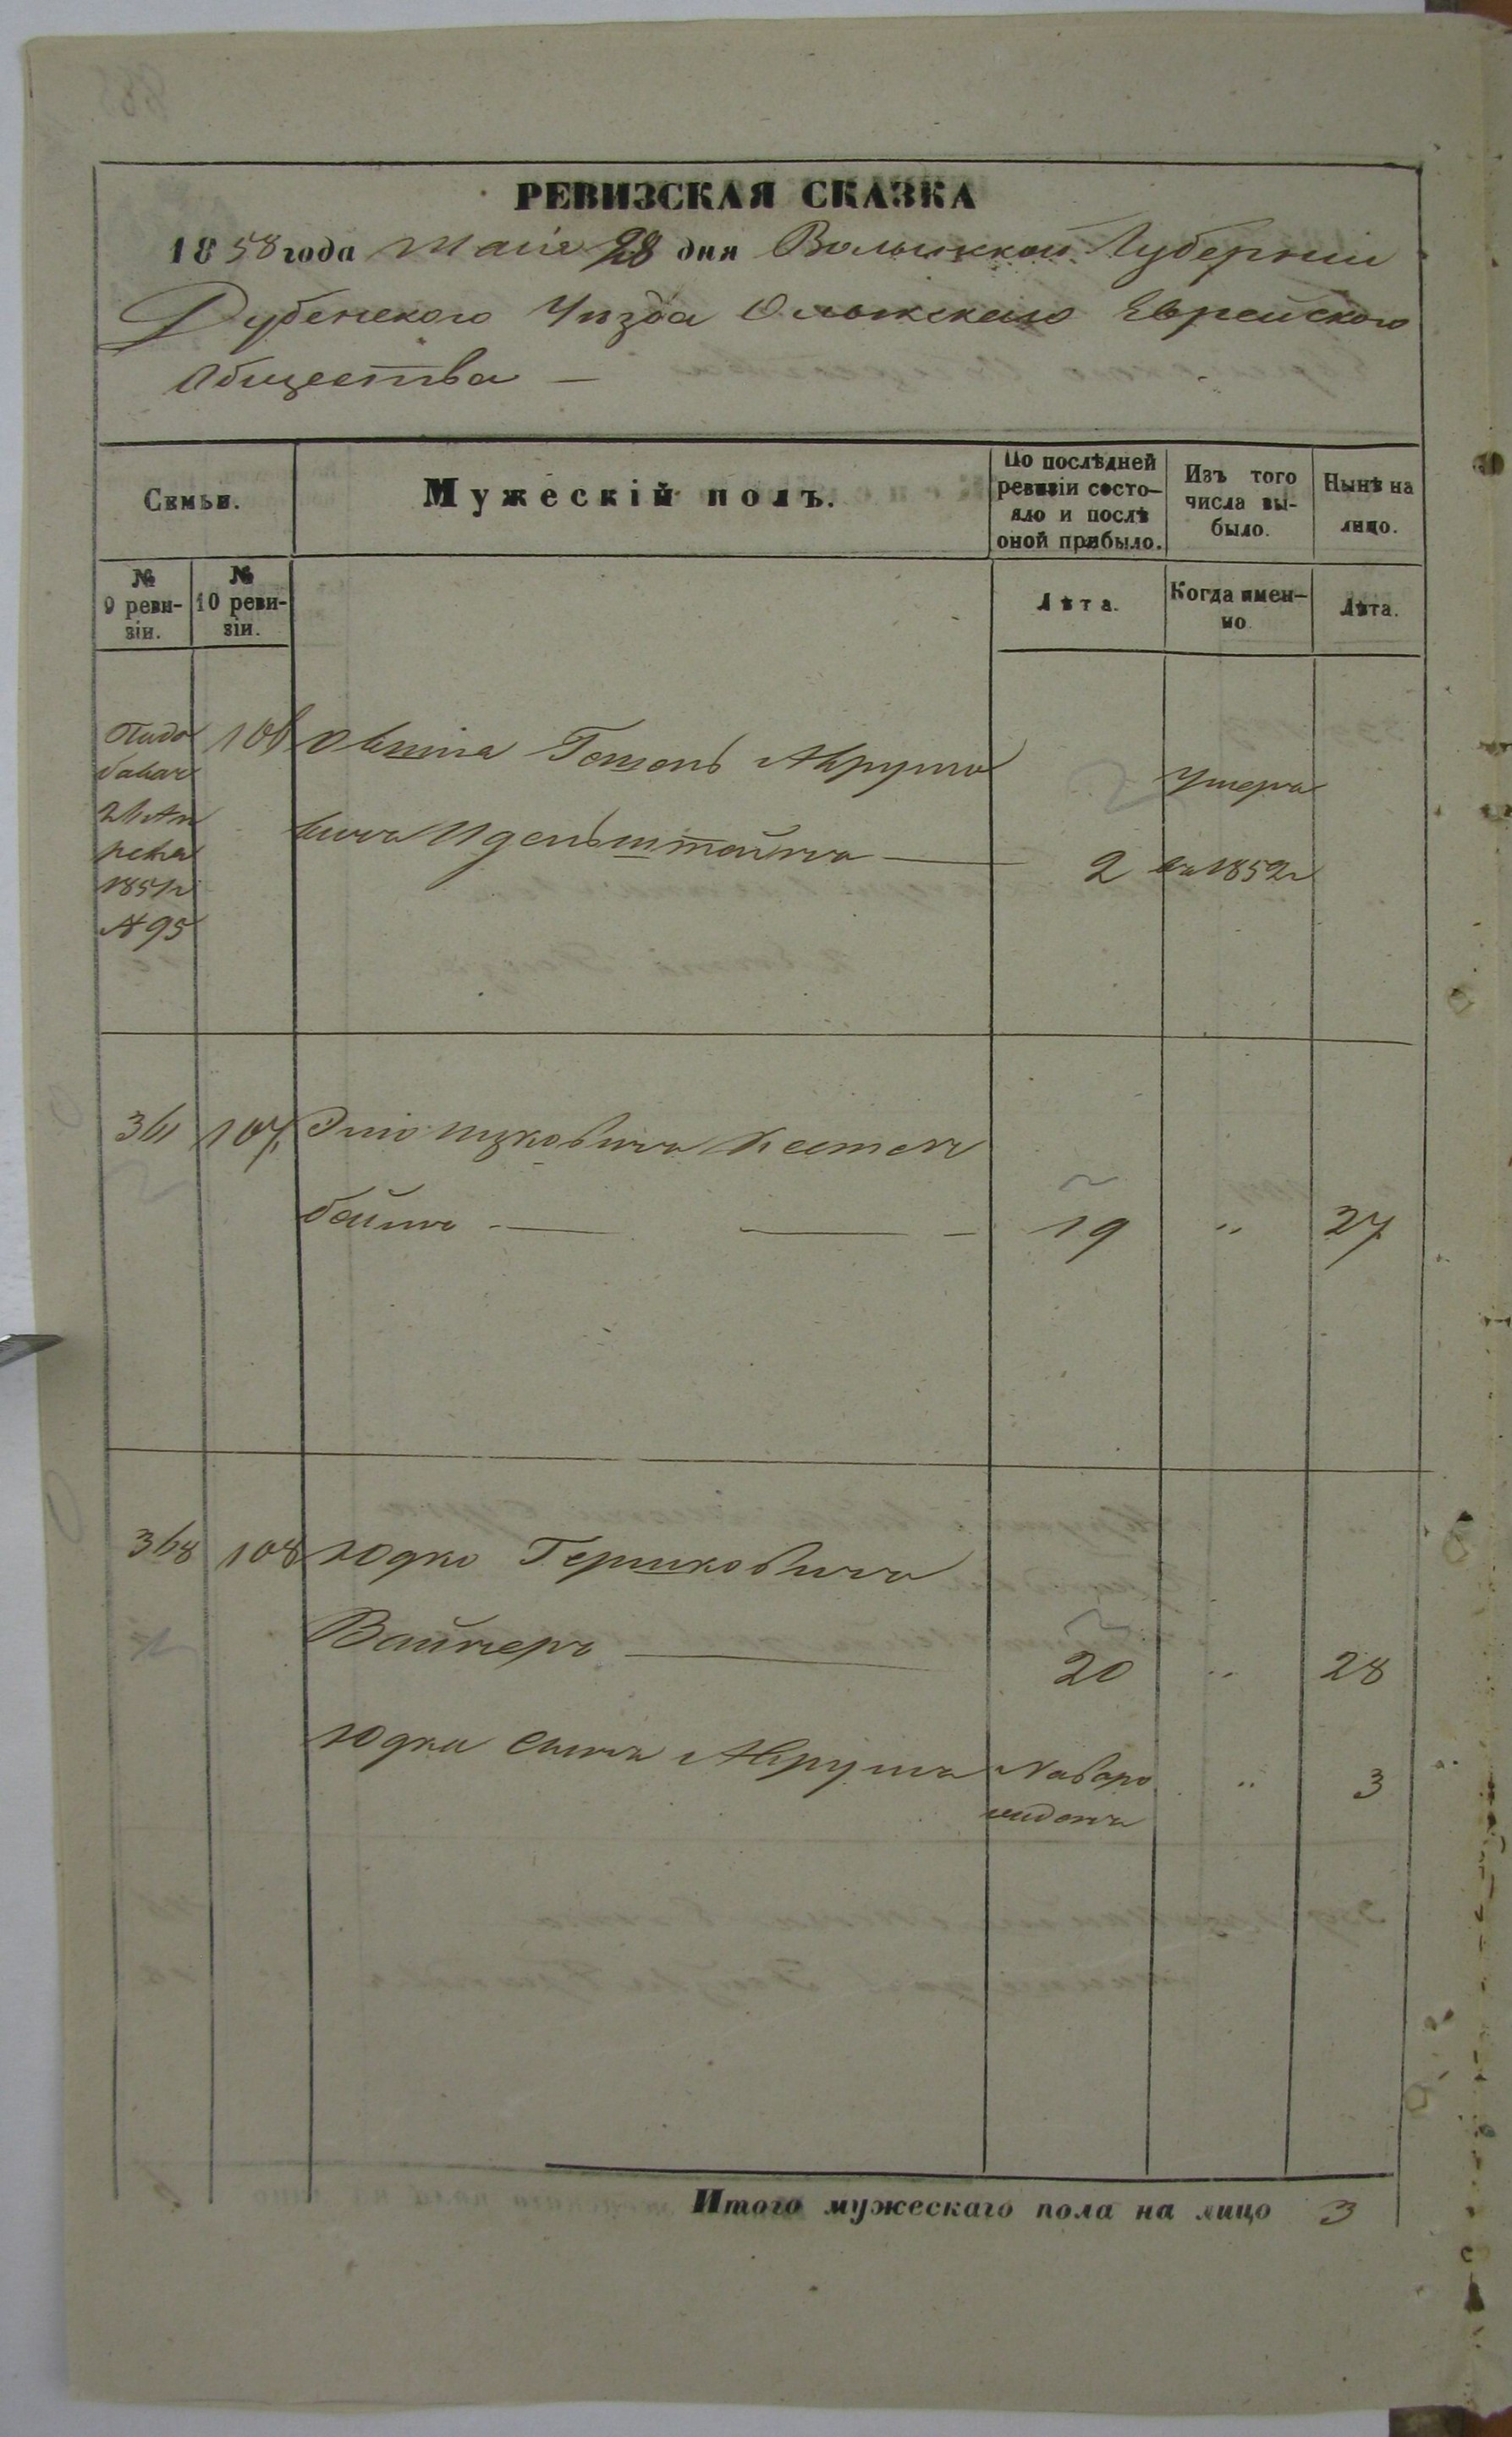 РЕВИЗСКАЯ СКАЗКА
1858 года Маія 28 дня Волынской Губерніи
Дубенскаго Уѣзда Олыкскаго Еврейскаго
Общества —
Семьи.
Мужескій полъ.
По послѣдней
ревизіи состо-
яло и послѣ
оной прибыло.
Изъ того
числа вы-
было.
Нынѣ на
лицо.
№
9 реви-
зіи.
№
10 реви-
зіи.
Лѣта.
Когда имен-
но
Лѣта.
106 Овшія Аврумо
вичъ 2
Умеръ
въ 1852г
1851г
№ 95
361 107 Ицковичъ
19 " 27
368 108 Юдко Гершковичъ
Вайнеръ — 20 " 28
Юдки сынъ Аврумъ Новоро " 3
жденъ
Итого мужескаго пола на лицо 3